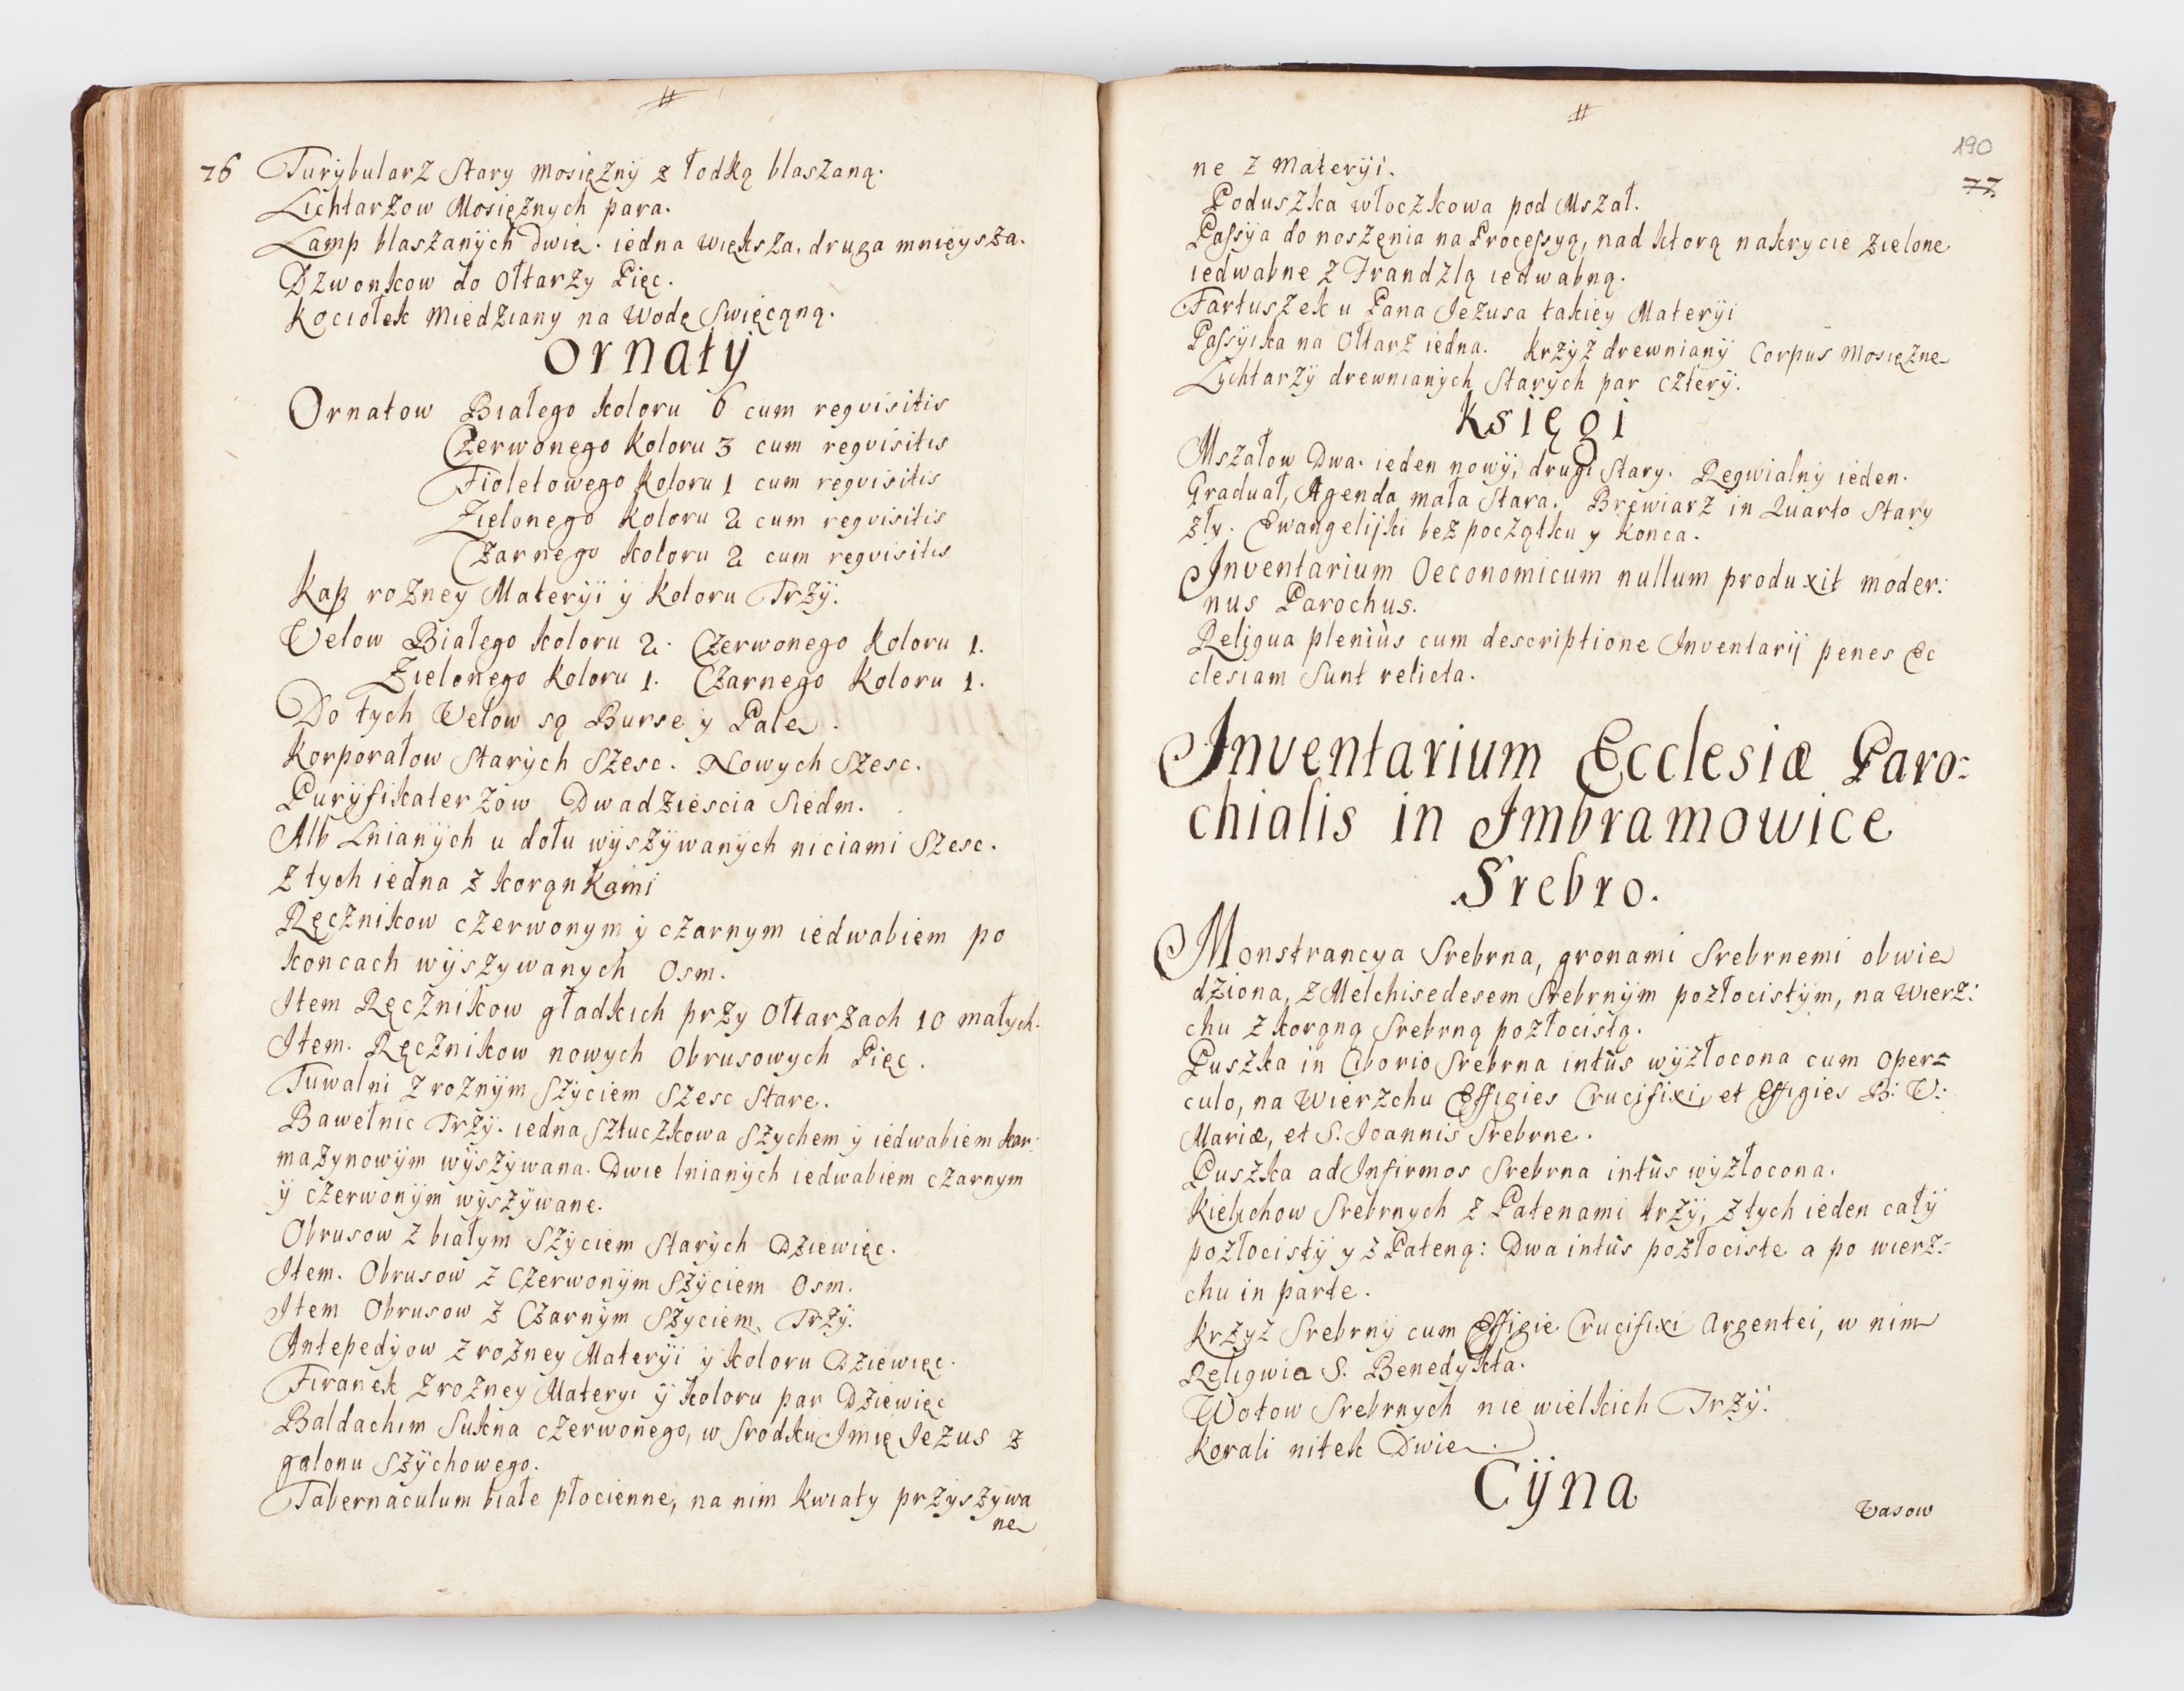 #
76 Turÿbularz Stary Mosiężnÿ z łodką blaszaną.
Lichtarzow Mosiężnych para.
Lamp blaszanÿch Dwie. iedna większa, druga mnieysza.
Dzwonkow do Ołtarzy Pięc.
Kociołek Miedziany na Wodę Swięcąną.
Ornatÿ
Ornatow Białego koloru 6 cum reqvisitis
Czerwonego koloru 3 cum reqvisitis
Fioletowego koloru 1 cum reqvisitis
Zielonego koloru 2 cum reqvisitis
Czarnego koloru 2 cum reqvisitis
Kap rozney Materÿi ÿ koloru Trzÿ.
Velow Białego koloru 2. Czerwonego koloru 1.
Zielonego koloru 1. Czarnego koloru 1.
Do tych Velow są Burse ÿ Pale.
Korporałow Starÿch Szesc. Nowych Szesc.
Purÿfikaterzow Dwadziescia Siedm.
Alb Lnianÿch u dołu wÿszÿwanÿch niciami Szesc.
z tych iedna z korąnkami
Ręcznikow czerwonym ÿ czarnym iedwabiem po
koncach wÿszywanych Osm.
Item Ręcznikow gładkich przy Ołtarzach 10 małych.
Item. Ręcznikow nowych Obrusowych Pięc.
Tuwalni z roznÿm Szÿciem Szesc Stare.
Bawełnic Trzÿ. iedna Sztuczkowa Szychem ÿ iedwabiem kar:
mazynowÿm wÿszÿwana. Dwie lnianÿch iedwabiem czarnym
ÿ czerwonÿm wÿszÿwane.
Obrusow z białym Szÿciem Starÿch Dziewięc.
Item. Obrusow z Czerwonÿm Szÿciem Osm.
Item Obrusow z Czarnÿm Szÿciem, Trzÿ.
Antepedÿow z rozney Materÿi ÿ koloru Dziewięc.
Firanek z rozney Materyi ÿ koloru par Dziewięc
Baldachim Sukna czerwonego, w Srodku Imię Jezus z
galonu Szÿchowego.
Tabernaculum białe płocienne, na nim kwiaty przÿszÿwa
ne
#
190
77
ne z Materÿi.
Poduszka włoczkowa pod Mszał.
Paſsÿa do noszęnia na Proceſsyą, nad ktorą nakrycie zielone
iedwabne z Frandzlą iedwabną.
Fartuszek u Pana Jezusa takiey Materÿi
Paſsÿika na Ołtarz iedna. Krzÿz drewnianÿ Corpus Mosięzne
Lychtarzÿ drewnianÿch Starÿch par czterÿ.
Księgi
Mszałow Dwa. ieden nowÿ, drugi Stary. Reqwialnÿ ieden.
Graduał, Agenda mała Stara. Brewiarz in Quarto Stary
zły. Ewangelijki bez początku y konca.
Inventarium Oeconomicum nullum produxit moder:
nus Parochus.
Reliqua pleniùs cum descriptione Inventarij penes Ec
clesiam Sunt relicta.
Inventarium Ecclesiæ Paro:
chialis in Imbramowice
Srebro.
Monstrancya Srebrna, gronami Srebrnemi obwie
dziona, z Melchisedesem Srebrnÿm pozłocistÿm, na wierz:
chu z korąną Srebrną pozłocistą.
Puszka in Ciborio Srebrna intûs wÿzłocona cum Oper=
culo, na Wierzchu Effigies Crucifixi, et Effigies B: V:
Mariæ, et S. Joannis Srebrne.
Puszka ad Infirmos Srebrna intûs wÿzłocona.
Kielichow Srebrnych z Patenami trzÿ, z tych ieden całÿ
pozłocistÿ y z Pateną: Dwa intûs pozłociste a po wierz:
chu in parte.
Krzÿz Srebrnÿ cum Effigie Crucifixi Argentei, w nim
Reliqwia S. Benedykta.
Wotow Srebrnych nie wielkich Trzÿ.
Korali nitek Dwie.
Cÿna
Vasow